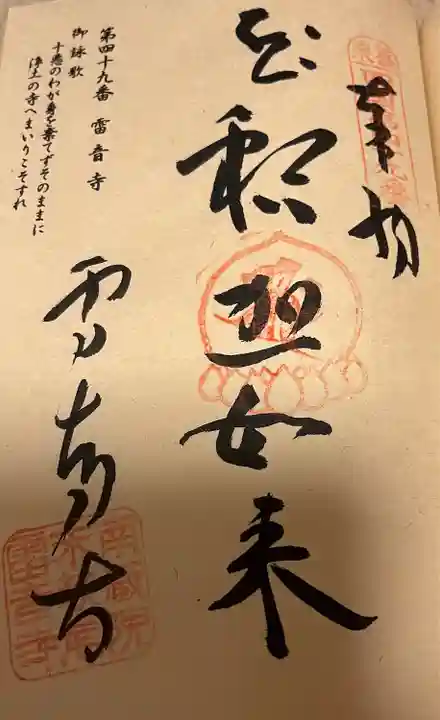 奉納
釈迦如来
第四十九番 雷音寺
御詠歌
十悪のわが身を棄てずそのままに
浄土の寺へまいりこそすれ
雷音寺